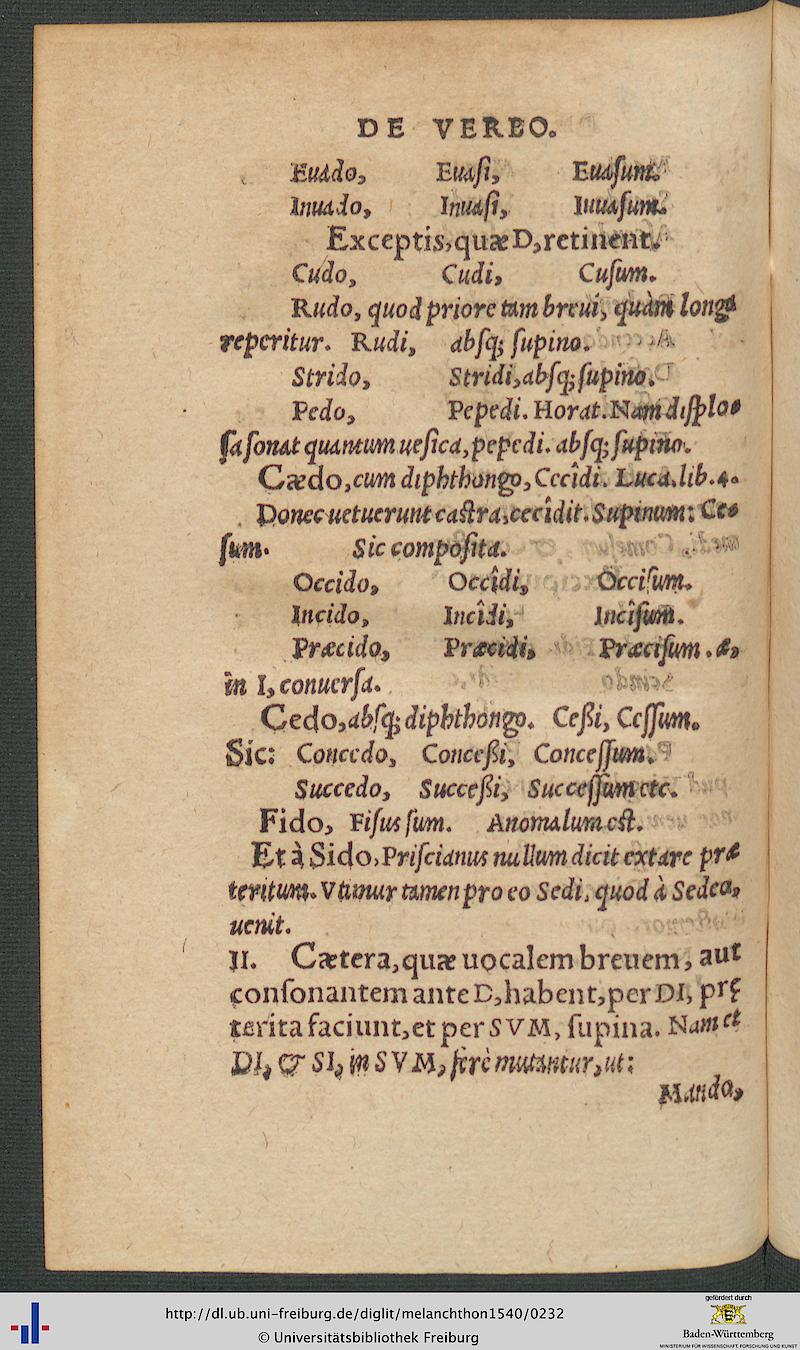 DE VERBO.
Euado, Euaſi, Euaſum.
Inuado, Inuaſi, Inuaſum.
Exceptis, quæ D, retinent.
Cudo, Cudi, Cuſum.
Rudo, quod priore tam breui, quàm longa
reperitur. Rudi, abſq; ſupino.
Strido, Stridi, abſq; ſupino.
Pedo, Pepedi. Horat. Nam diſplo-
ſa ſonat quantum ueſica, pepedi. abſq; ſupino.
Cædo, cum diphthongo, Cecîdi. Luca. lib. 4.
Donec uetuerunt caſtra, cecîdit. Supinum: Ce-
ſum. Sic compoſita.
Occido, Occîdi, Occiſum.
Incido, Incîdi, Incîſum.
Præcido, Præcidi, Præciſum. æ,
in I, conuerſa.
Cedo, abſq; diphthongo. Ceßi, Ceſſum.
Sic: Concedo, Conceßi, Conceſſum.
Succedo, Succeßi, Succeſſum etc.
Fido, Fiſus ſum. Anomalum eſt.
Et à Sido, Priſcianus nullum dicit extare præ
teritum. Vtimur tamen pro eo Sedi, quod à Sedeo,
uenit.
II. Cætera, quæ uocalem breuem, aut
conſonantem ante D, habent, per DI, prę
terita faciunt, et per SVM, ſupina. Nam et
DI, & SI, in SVM, ferè mutantur, ut:
Mando,
http://dl.ub.uni-freiburg.de/diglit/melanchthon1540/0232
© Universitätsbibliothek Freiburg
gefördert durch
Baden-Württemberg
MINISTERIUM FÜR WISSENSCHAFT, FORSCHUNG UND KUNST